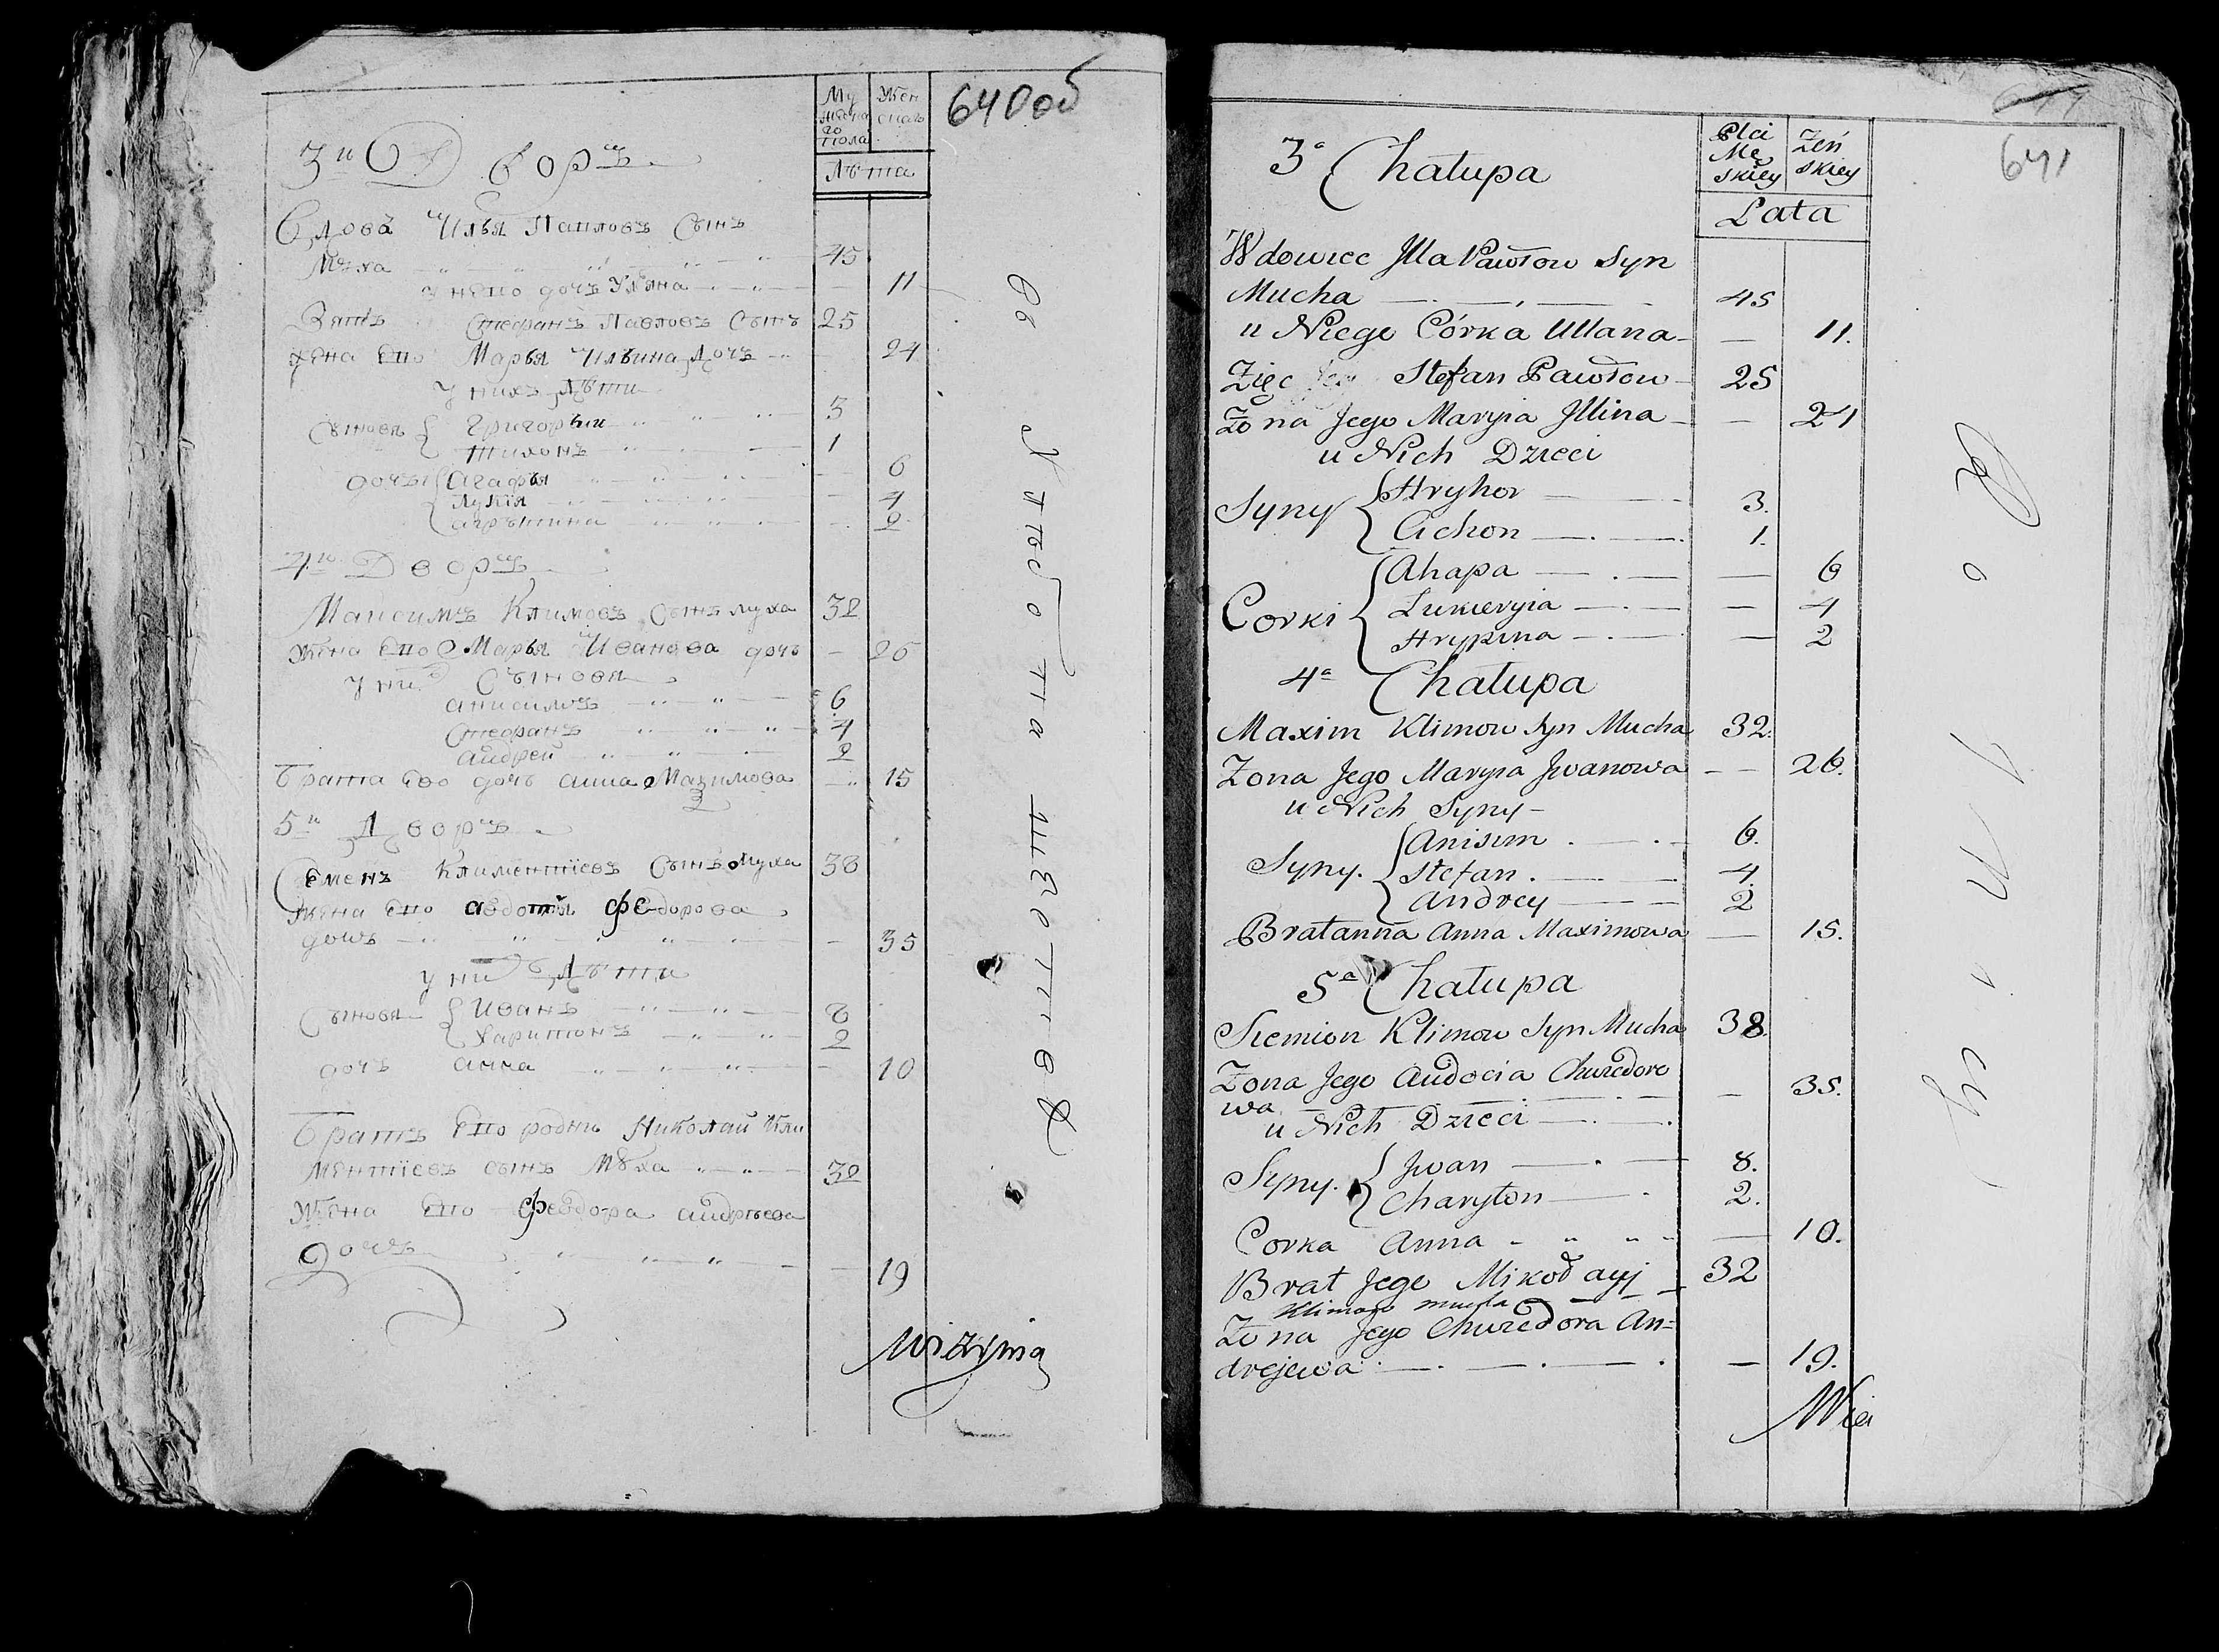 640об
Му
жеска
го
пола
Жен
скаго
Лѣта
3й Дворъ
Вдовъ Илья Павловъ Сынъ
Муха 45
у него дочь Ульяна 11
Зять Стефанъ Павловъ Сынъ 25
жена его Марья Ильина дочь 24
у нихъ дѣти
Сыновя Григорьи 3
Тихонъ 1
дочьи Агафья 6
Лукія 4
Агрѣпина 2
4й Дворъ
Максимъ Климовъ Сынъ Муха 32
Жена его Марья Иванова дочь 26
у них Сыновя
Анисимъ 6
Стефанъ 4
Андрей 2
Брата его дочь Анна Мазимова 15
5й Дворъ
Семенъ Климентіевъ Сынъ Муха 38
Жена его Авдотья Федорова
дочь 35
у них Дѣти
Сыновя Иванъ 8
Харитонъ 2
дочь Анна 10
Братъ его родны Николай Кли
ментіевъ сынъ Мȣха 32
Жена его Феодора Андрѣева
дочь 19
641
3a Chałupa
Płci
Mę
skiey
Żeń
skiey
Lata
Wdowiec Jlla Pawłow Syn
Mucha 45
u Niego Córka Ullana 11.
Zięc Stefan Pawłow 25
Żona Jego Maryia Jllina 24
u Nich Dzieci
Syny Hryhor 3.
Cichon 1.
Corki Ahapa 6
Lukieryia 4
Hrypina 2
4a Chałupa
Maxim Klimow Syn Mucha 32.
Żona Jego Maryia Jwanowa 26.
u Nich Syny
Syny. Anisim 6.
Stefan 4
Andrey 2
Bratanna Anna Maximowa 15.
5a Chałupa
Siemion Klimow Syn Mucha 38.
Żona Jego Audocia Chwiedoro
wa 35.
u Nich Dzieci
Syny. Jwan 8.
Charyton 2.
Corka Anna 10.
Brat Jego Mikołayj 32
Klimow mucha
Żona Jego Chwiedora An=
drejewa 19.